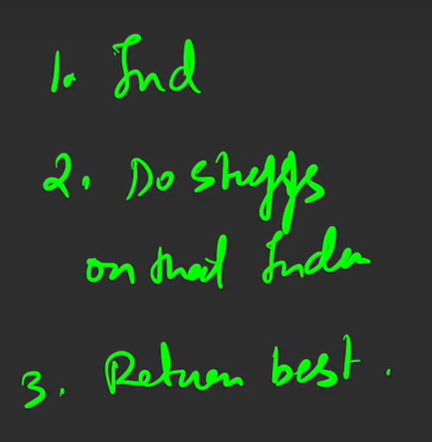 1. Ind
2. Do stuffs
on that Index
3. Return best.